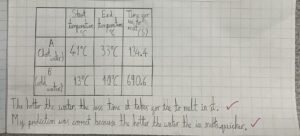 Start temperature °C
End temperature °C
Time for ice to melt (s)
A (hot water) 41°C 33°C 124.4
B (cold water) 13°C 10°C 690.6
The hotter the water, the less time it takes for ice to melt in it.
My prediction was correct because the hotter the water the ice melts quicker.